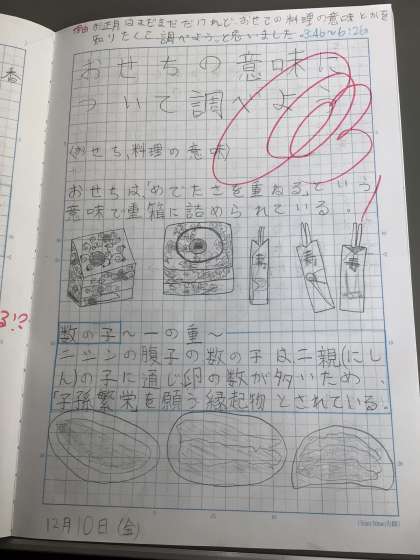 理由 お正月はまだまだだけれど、おせちの料理の意味とかを
知りたくて、調べようと思いました。3:46～6:26
おせちの意味に
ついて調べよう
〈おせち料理の意味〉
おせちは「めでたさを重ねる」という
意味で重箱に詰められている。
寿
寿
寿
数の子～一の重～
ニシンの腹子の数の子は二親(にし
ん)の子に通じ卵の数が多いため、
「子孫繁栄を願う縁起物とされている。
12月10日(金)
香